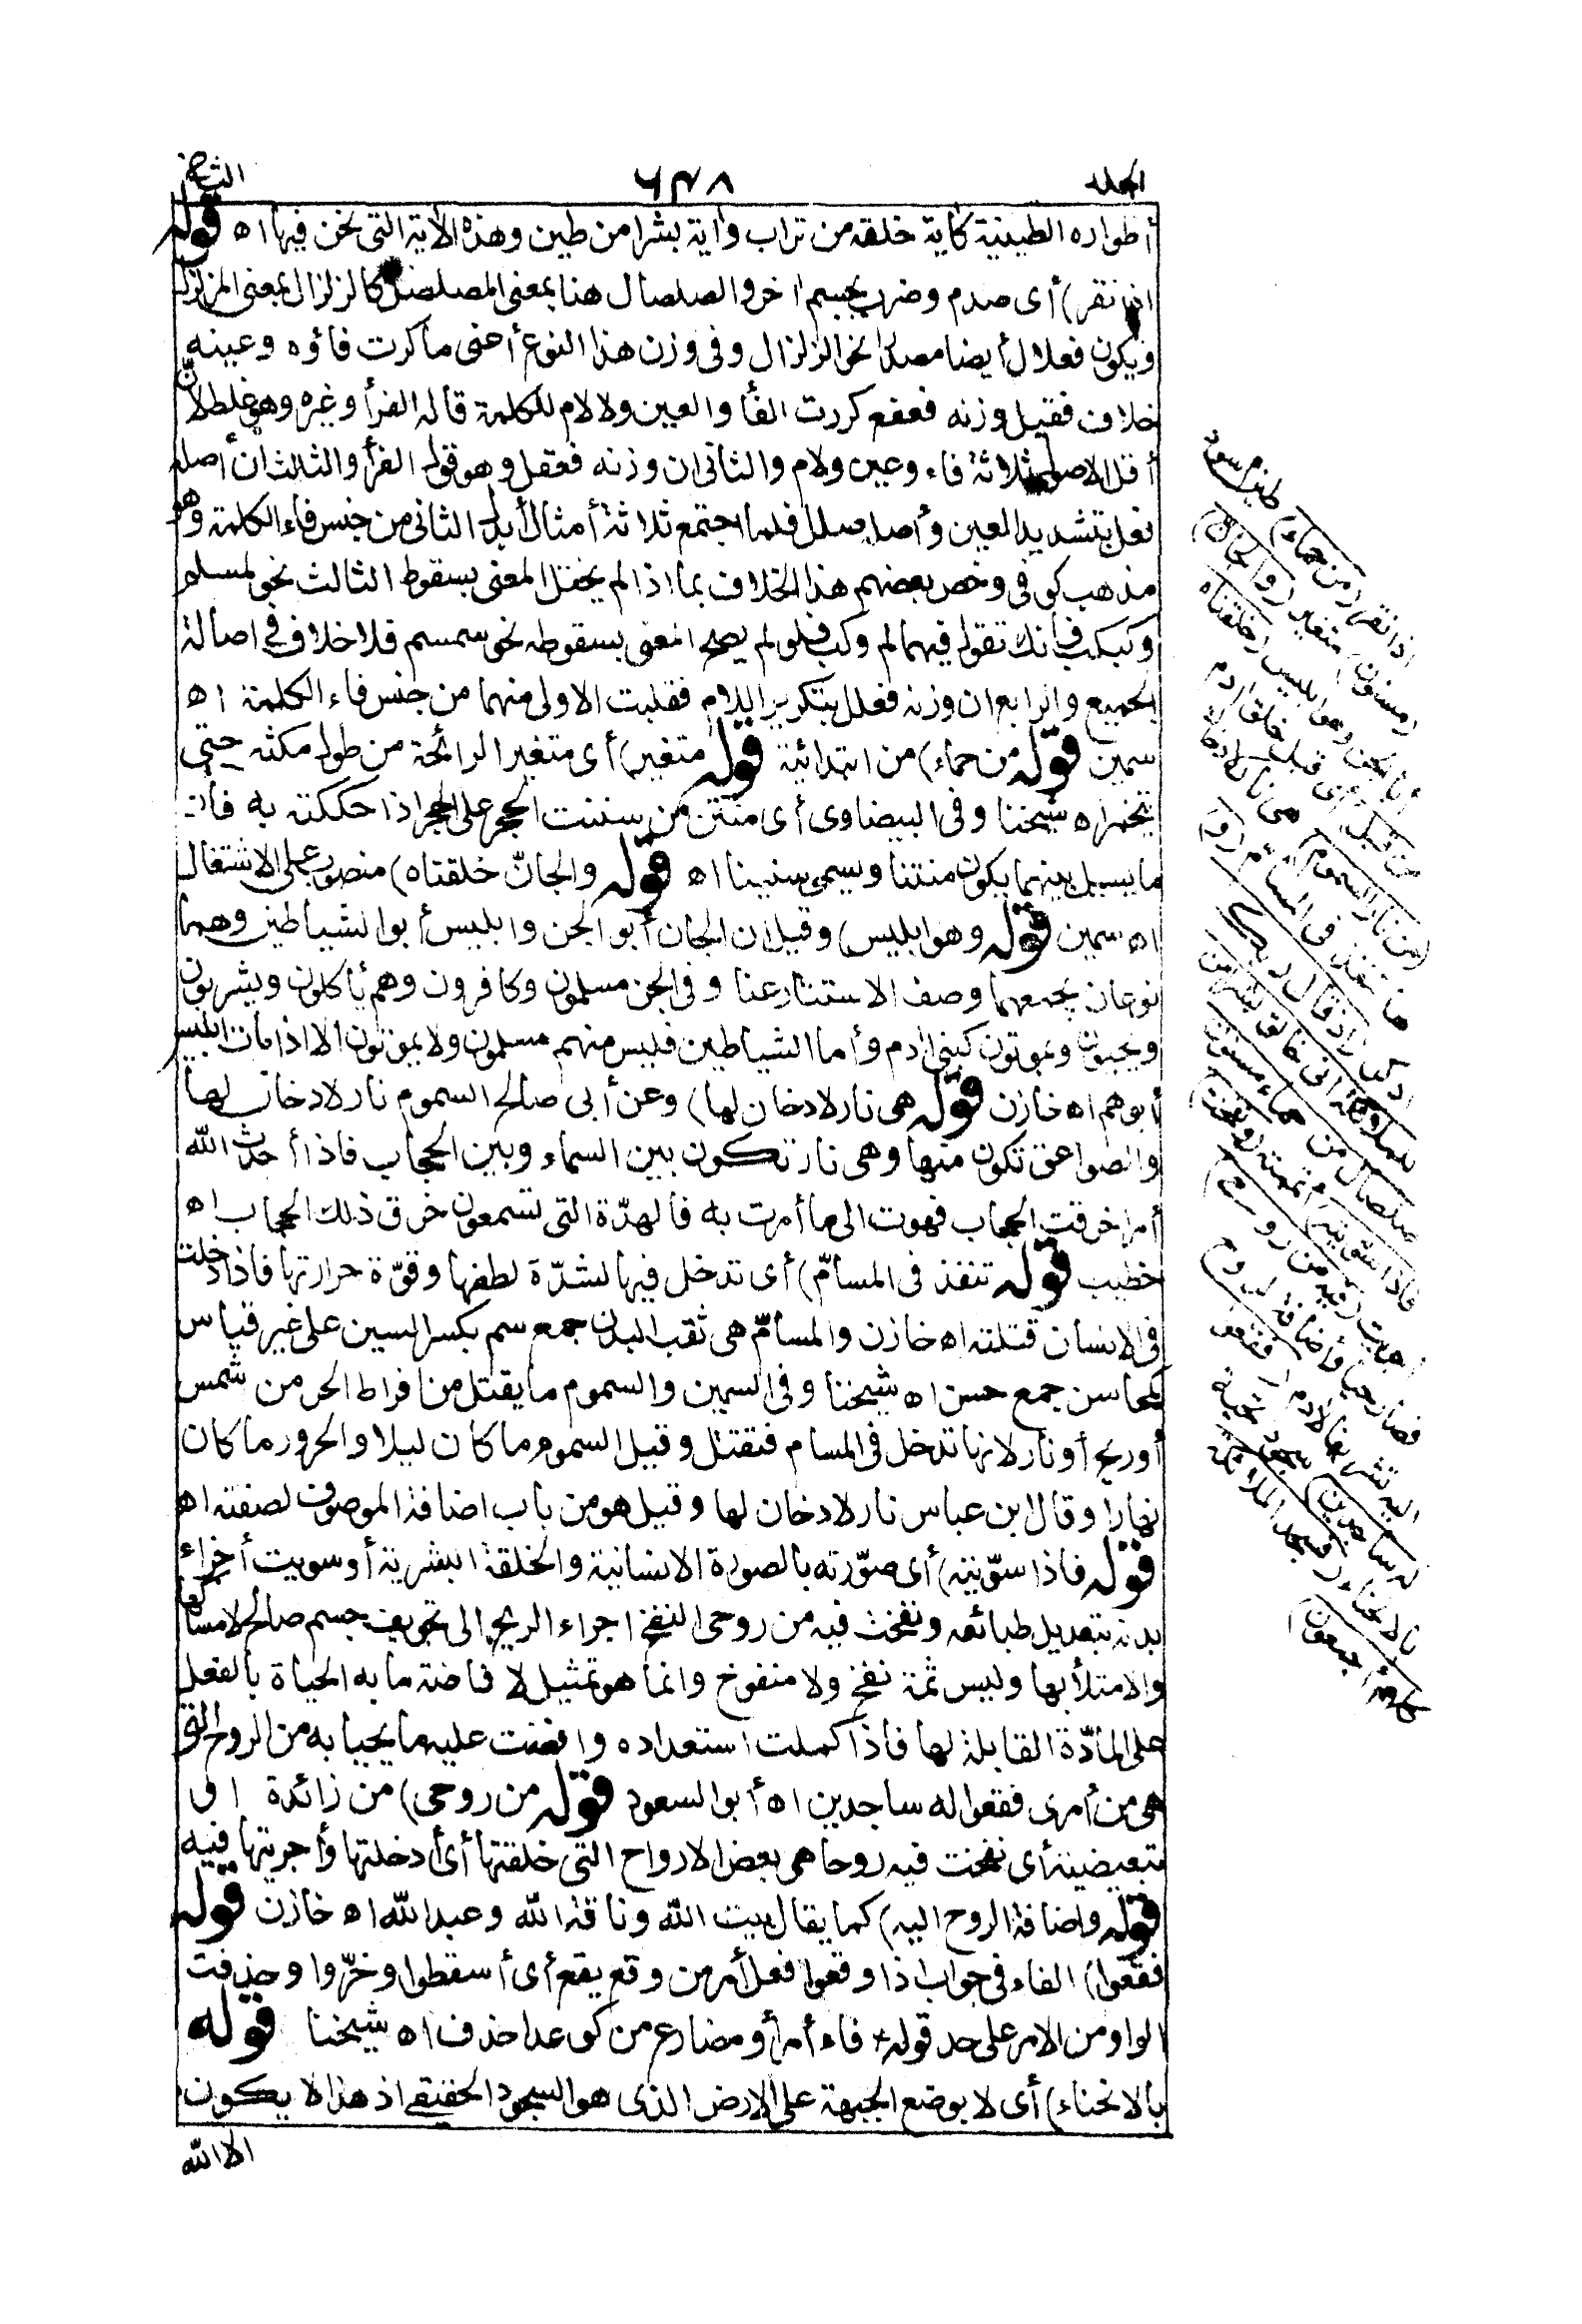 الجلد
٦٣٨
الثاني
أطواره الطينية كآية خلقه من تراب وآية بشرا من طين وهذه الآية التي نحن فيها اه قوله
اذا نقر) أى صدم وضرب بجسم آخر والصلصال هنا بمعنى المصلصل كالزلزال بمعنى المزلزل
ويكون فعلال أيضا مصدرا نحو الزلزال وفى وزن هذا النوع أعنى ما كررت فاؤه وعينه
خلاف فقيل وزنه فعفع كررت الفأ والعين ولا لام للكلمة قاله الفرأ وغيره وهو غلط لأنّ
أقل الاصول ثلاثة فاء وعين ولام والثانى ان وزنه فعفل وهو قول الفرأ والثالث أن أصله
فعل بتشديد العين وأصله صلل فلما اجتمع ثلاثة أمثال أبدل الثانى من جنس فاء الكلمة وهو
مذهب كوفى وخص بعضهم هذا الخلاف بما اذا لم يختل المعنى بسقوط الثالث نحو لملم
وكبكب فانك تقول فيهما لم وكب فلو لم يصح المعنى بسقوطه نحو سمسم فلا خلاف في اصالة
الجميع والرابع ان وزنه فعلل بتكرير اللام فقلبت الاولى منهما من جنس فاء الكلمة اه
سمين قوله من حماء) من ابتدائية قوله متغير) أى متغير الرائحة من طول مكثه حتى
يتخمر اه شيخنا وفى البيضاوى أى منتن من سننت الحجر على الحجر اذا حككته به فان
ما يسيل بينهما يكون منتنا ويسمى سنينا اه قوله والجانّ خلقناه) منصوب على الاشتغال
اه سمين قوله وهو ابليس) وقيل ان الجان أبو الجن وابليس أبو الشياطين وهما
نوعان يجمعهما وصف الاستتار عنا وفى الجن مسلمون وكافرون وهم يأكلون ويشربون
ويحيون ويموتون كبنى ادم وأما الشياطين فليس منهم مسلمون ولا يموتون الا اذا مات ابليس
أبوهم اه خازن قوله هى نار لا دخان لها) وعن أبى صالح السموم نار لا دخان لها
والصواعق تكون منها وهى نار تكون بين السماء وبين الحجاب فاذا أحدث الله
أمرا خرقت الحجاب فهوت الى ما أمرت به فالهدّة التى تسمعون خرق ذلك الحجاب اه
خطيب قوله تنفذ فى المسامّ) أى تدخل فيها لشدّة لطفها وقوّة حرارتها فاذا دخلت
فى الانسان قتلته اه خازن والمسامّ هى ثقب البدن جمع سم بكسر السين على غير قياس
كمحاسن جمع حسن اه شيخنا وفى السمين والسموم ما يقتل من افراط الحر من شمس
أو ريح أو نار لانها تدخل فى المسام فتقتل وقيل السموم ما كان ليلا والحرور ما كان
نهارا وقال ابن عباس نار لا دخان لها وقيل هو من باب اضافة الموصوف لصفته اه
قوله فاذا سوّيته) أى صوّرته بالصورة الانسانية والخلقة البشرية أو سويت أجزاء
بدنه بتعديل طبائعه ونفخت فيه من روحى النفخ اجراء الريح الى تجويف جسم صالح لامساكها
والامتلأ بها وليس ثمة نفخ ولا منفوخ وانما هو تمثيل لافاضة ما به الحياة بالفعل
على المادّة القابلة لها فاذا كملت استعداده وافضت عليه ما يحيا به من الروح التى
هى من أمرى فقعوا له ساجدين اه أبو السعود قوله من روحى) من زائدة او
تبعيضية أى نفخت فيه روحا هى بعض الارواح التى خلقتها أى أدخلتها وأجريتها فيه
قوله واضافة الروح اليه) كما يقال بيت الله وناقة الله وعبد الله اه خازن قوله
فقعوا) الفاء فى جواب اذا وقعوا فعل أمر من وقع يقع أى أسقطوا وخرّوا وحذفت
الواو من الامر على حد قوله + فاء أمر أو مضارع من كوعد احذف اه شيخنا قوله
بالانحناء) أى لا بوضع الجبهة على الارض الذى هو السجود الحقيقى اذ هذا لا يكون
الا لله
اذا نقر (من حماء) طين أسود
(مسنون) متغير (والجان)
أبا الجن وهو ابليس (خلقناه
من قبل) أى قبل خلق ادم
(من نار السموم) هى نار لا دخان لها
تنفذ فى المسامّ (و)
اذكر (اذ قال ربك
للملائكة انى خالق بشرا من
صلصال من حماء مسنون
فاذا سويته) أتممته (ونفخت)
أجريت (فيه من روحى)
فصار حيا واضافة الروح
اليه تشريف لادم (فقعوا
له ساجدين) سجود تحية
بالانحناء (فسجد الملائكة
كلهم أجمعون)